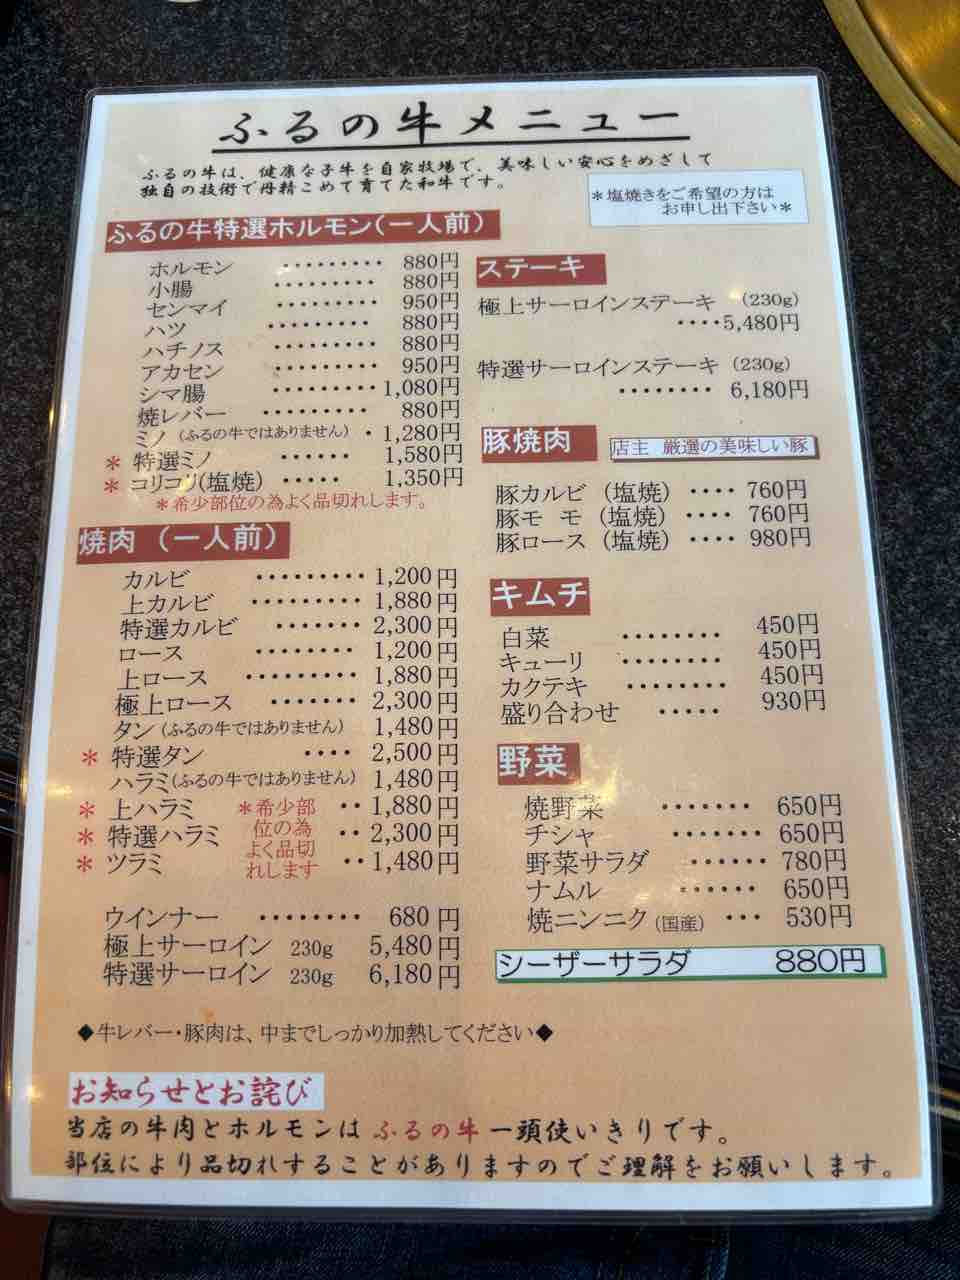 ふるの牛メニュー
ふるの牛は、健康な子牛を自家牧場で、美味しい安心をめざして
独自の技術で丹精こめて育てた和牛です。
＊塩焼きをご希望の方は
お申し出下さい＊
ふるの牛特選ホルモン(一人前)
ホルモン ・・・・・・・・・ 880円
小腸 ・・・・・・・・・ 880円
センマイ ・・・・・・・・・ 950円
ハツ ・・・・・・・・・ 880円
ハチノス ・・・・・・・・・ 880円
アカセン ・・・・・・・・・ 950円
シマ腸 ・・・・・・・・・ 1,080円
焼レバー ・・・・・・・・・ 880円
ミノ (ふるの牛ではありません) ・ 1,280円
＊ 特選ミノ ・・・・・・ 1,580円
＊ コリコリ(塩焼) ・・・・・ 1,350円
＊希少部位の為よく品切れします。
焼肉 (一人前)
カルビ ・・・・・・・・・ 1,200円
上カルビ ・・・・・・・・・ 1,880円
特選カルビ ・・・・・・・ 2,300円
ロース ・・・・・・・・ 1,200円
上ロース ・・・・・・・・・ 1,880円
極上ロース ・・・・・・・ 2,300円
タン (ふるの牛ではありません) 1,480円
＊ 特選タン ・・・・ 2,500円
ハラミ(ふるの牛ではありません) 1,480円
＊ 上ハラミ ・・ 1,880円
＊ 特選ハラミ ・・ 2,300円
＊ ツラミ ・・ 1,480円
＊希少部
位の為
よく品切
れします
ウインナー ・・・・・・・・ 680円
極上サーロイン 230g 5,480円
特選サーロイン 230g 6,180円
ステーキ
極上サーロインステーキ (230g)
・・・・5,480円
特選サーロインステーキ (230g)
・・・・・・・・ 6,180円
豚焼肉 店主 厳選の美味しい豚
豚カルビ (塩焼) ・・・・ 760円
豚モモ (塩焼) ・・・・ 760円
豚ロース (塩焼) ・・・・ 980円
キムチ
白菜 ・・・・・・・・ 450円
キューリ ・・・・・・・・ 450円
カクテキ ・・・・・・・・ 450円
盛り合わせ ・・・・・ 930円
野菜
焼野菜 ・・・・・・・ 650円
チシャ ・・・・・・・ 650円
野菜サラダ ・・・・・・ 780円
ナムル ・・・・・・ 650円
焼ニンニク (国産) ・・・ 530円
シーザーサラダ 880円
◆牛レバー・豚肉は、中までしっかり加熱してください◆
お知らせとお詫び
当店の牛肉とホルモンは ふるの牛 一頭使いきりです。
部位により品切れすることがありますのでご理解をお願いします。